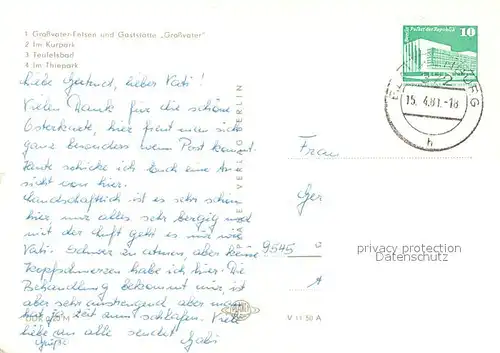 1 Großvater-Entsen und Gaststätte „Großvater"
2 Im Kurpark
3 Teufelsbad
4 Im Thiepark
Liebe Gertrud, lieber Vati!
Vielen Dank für die schöne
Osterkarte, hier freut man sich
ganz besonders wenn Post kommt.
Heute schicke ich Euch eine An-
sicht von hier.
Landschaftlich ist es sehr schön
hier, nur alles sehr bergig und
mit der Luft geht es mir wie
Vati. Schwer zu atmen, aber keine
Kopfschmerzen habe ich hier. Die
Behandlung bekommt mir, ist
aber sehr anstrengend aber man
hat ja Zeit zum schlafen. Viele
liebe an alle sendet Gabi
Grüße
DDR 0,20 M
VERLAG BERLIN
Palast der Republik
10
15. 4.81.-18
h
Frau
Ger
9545
A
privacy protection
Datenschutz
V 11 50 A